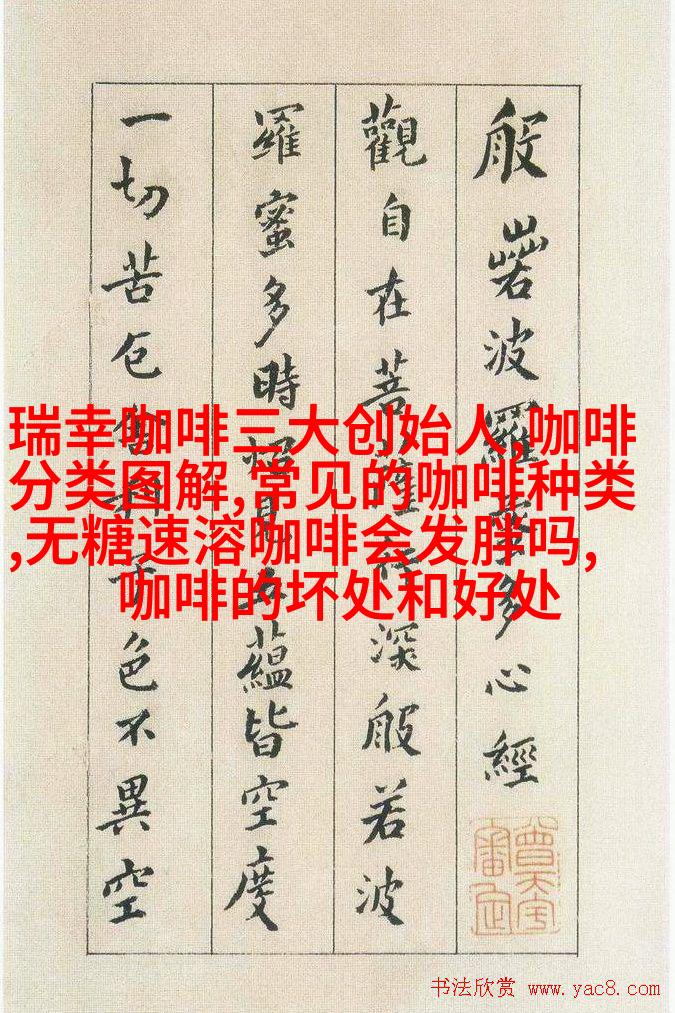 般若波羅蜜多心經
觀自在菩薩行深般若波
羅蜜多時照見五蘊皆空度
一切苦厄舍利子色不異空
瑞幸咖啡三大创始人,咖啡
分类图解,常见的咖啡种类
,无糖速溶咖啡会发胖吗,
咖啡的坏处和好处
书法欣赏 www.yac8.com